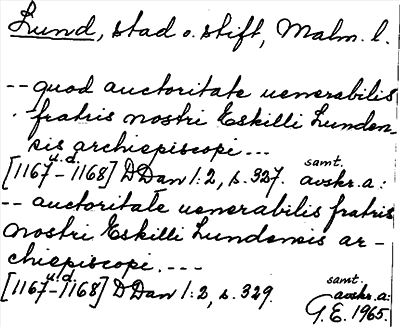 Lund, stad o. stift, Malm. l.
-- quod auctoritate uenerabilis
fratris nostri Eskilli Lunden-
sis archiepiscopi ---
[1167 u.d. - 1168] DDan 1:2, s. 327. samt. avskr. a:
-- auctoritate uenerabilis fratris
nostri Eskilli Lundensis ar-
chiepiscopi. ---
[1167 u.d. - 1168] DDan 1:2, s. 329. samt. avskr. a:
G.E. 1965.